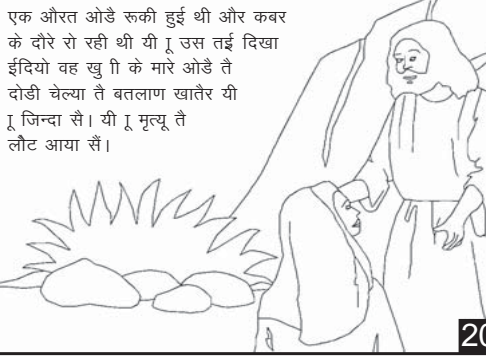 एक औरत ओडै रूकी हुई थी और कबर
के दौरे रो रही थी यी ु उस तई दिखा
ईदियो वह खु ी के मारे ओडै तै
दोडी चेल्या तै बतलाण खातैर यी
ु जिन्दा सै। यी ु मृत्यू तै
लौट आया सैं।
20